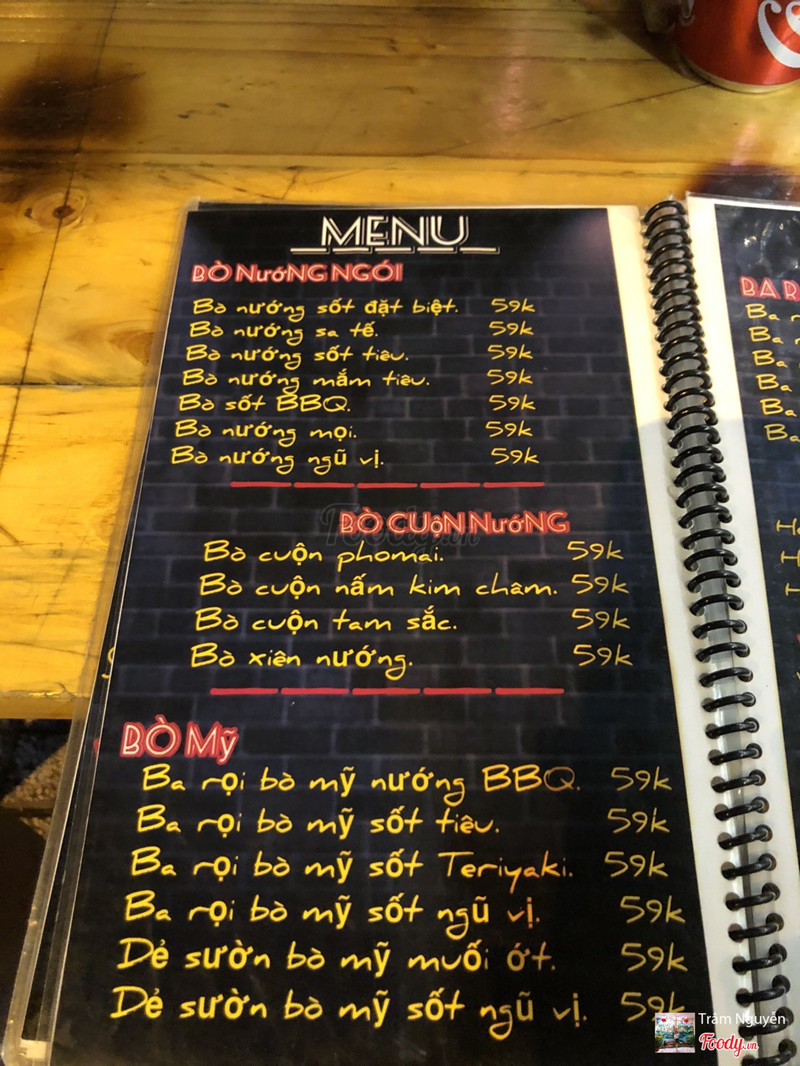 MENU
BÒ NướNG NGÓI
Bò nướng sốt đặt biệt. 59k
Bò nướng sa tế. 59k
Bò nướng sốt tiêu. 59k
Bò nướng mắm tiêu. 59k
Bò sốt BBQ. 59k
Bò nướng mọi. 59k
Bò nướng ngũ vị. 59k
BÒ CUộN NướNG
Bò cuộn phomai. 59k
Bò cuộn nấm kim châm. 59k
Bò cuộn tam sắc. 59k
Bò xiên nướng. 59k
BÒ Mỹ
Ba rọi bò mỹ nướng BBQ. 59k
Ba rọi bò mỹ sốt tiêu. 59k
Ba rọi bò mỹ sốt Teriyaki. 59k
Ba rọi bò mỹ sốt ngũ vị. 59k
Dẻ sườn bò mỹ muối ớt. 59k
Dẻ sườn bò mỹ sốt ngũ vị. 59k
BA
Ba
Ba
Ba
Ba
Ba
Ba
Foody.vn
Trâm Nguyễn
Foody.vn